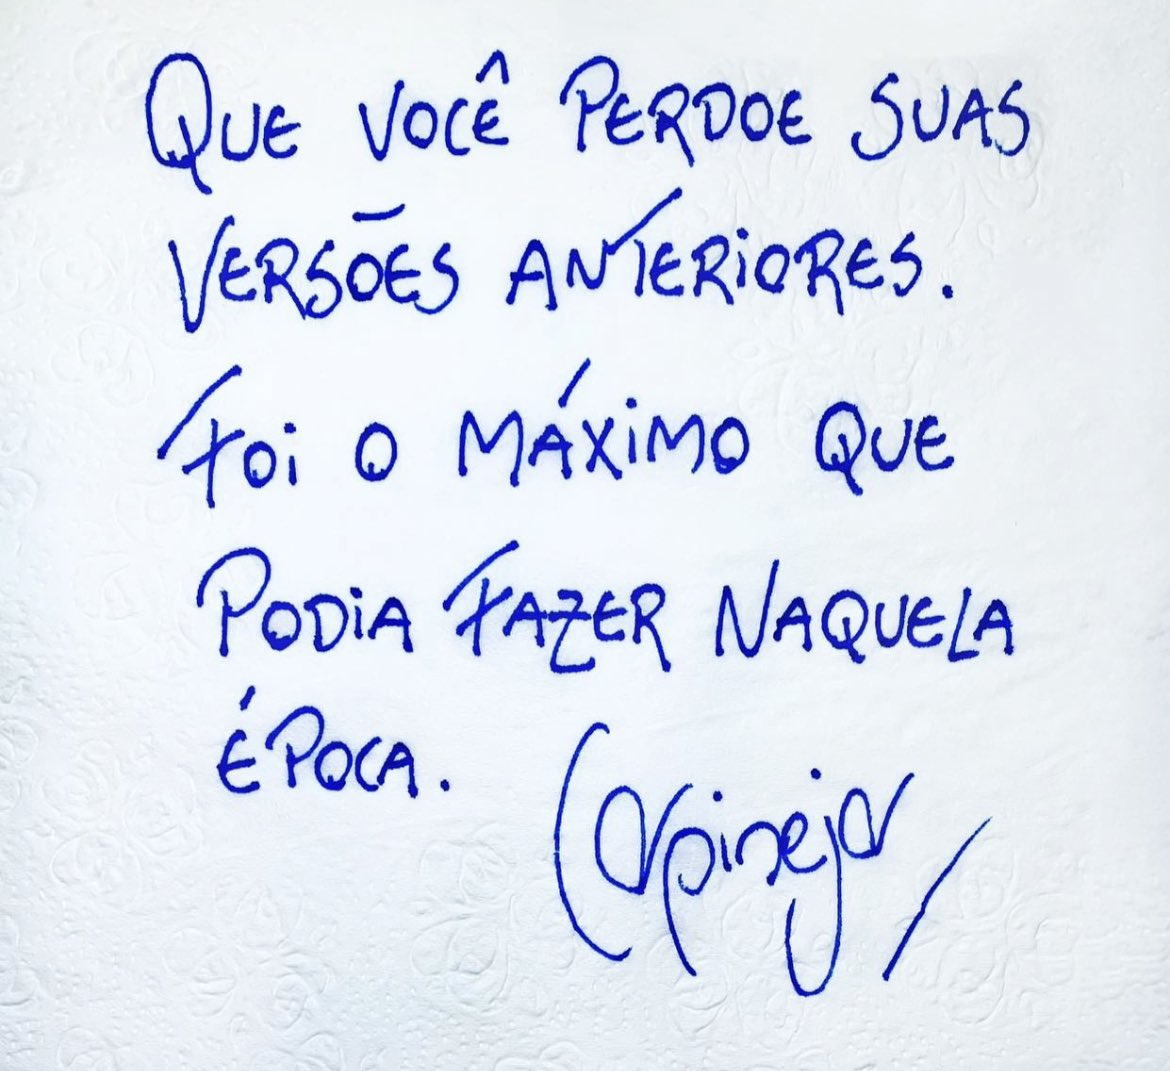 QUE VOCÊ PERDOE SUAS
VERSÕES ANTERIORES.
FOI O MÁXIMO QUE
PODIA FAZER NAQUELA
ÉPOCA.
Carpinejar